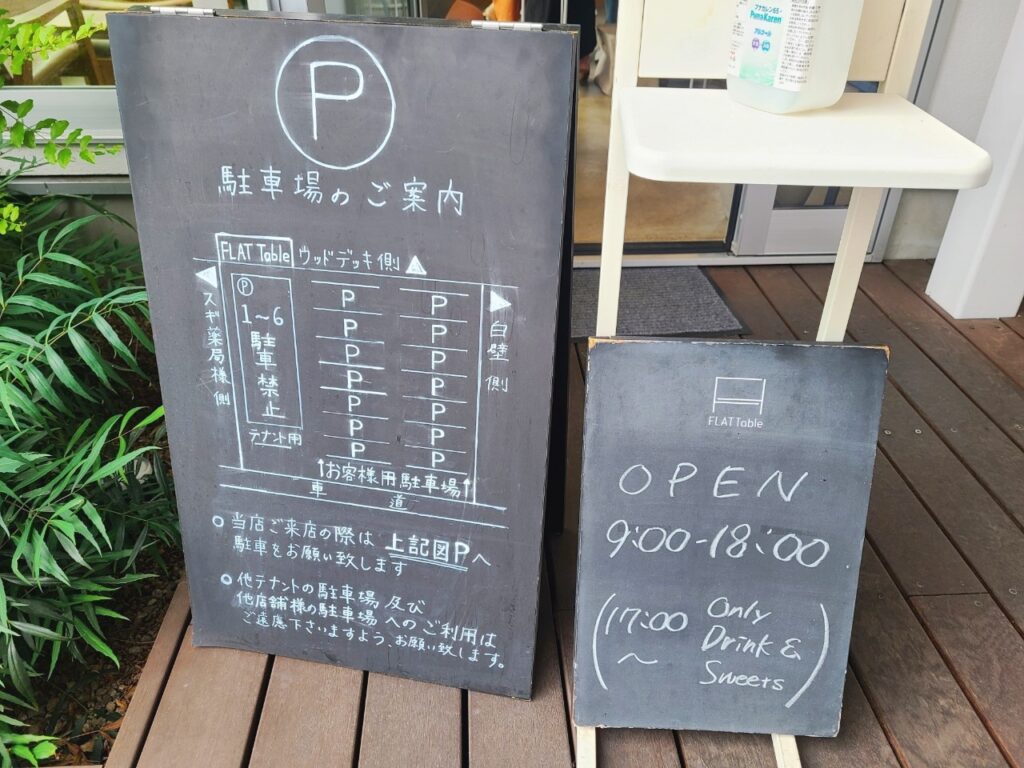 P
駐車場のご案内
FLAT Table
ウッドデッキ側▲
◀
スギ薬局様側
Ⓟ
1~6
駐車禁止
テナント用
P
P
P
P
P
P
P
P
P
P
P
P
P
P
▶
白壁側
↑お客様用駐車場↑
車道
○当店ご来店の際は 上記図Pへ
駐車をお願い致します
○他テナントの駐車場 及び
他店舗様の駐車場へのご利用は
ご遠慮下さいますよう、お願い致します。
FLAT Table
OPEN
9:00-18:00
(17:00~ Only
Drink &
Sweets)
PunaKaren
アルコール